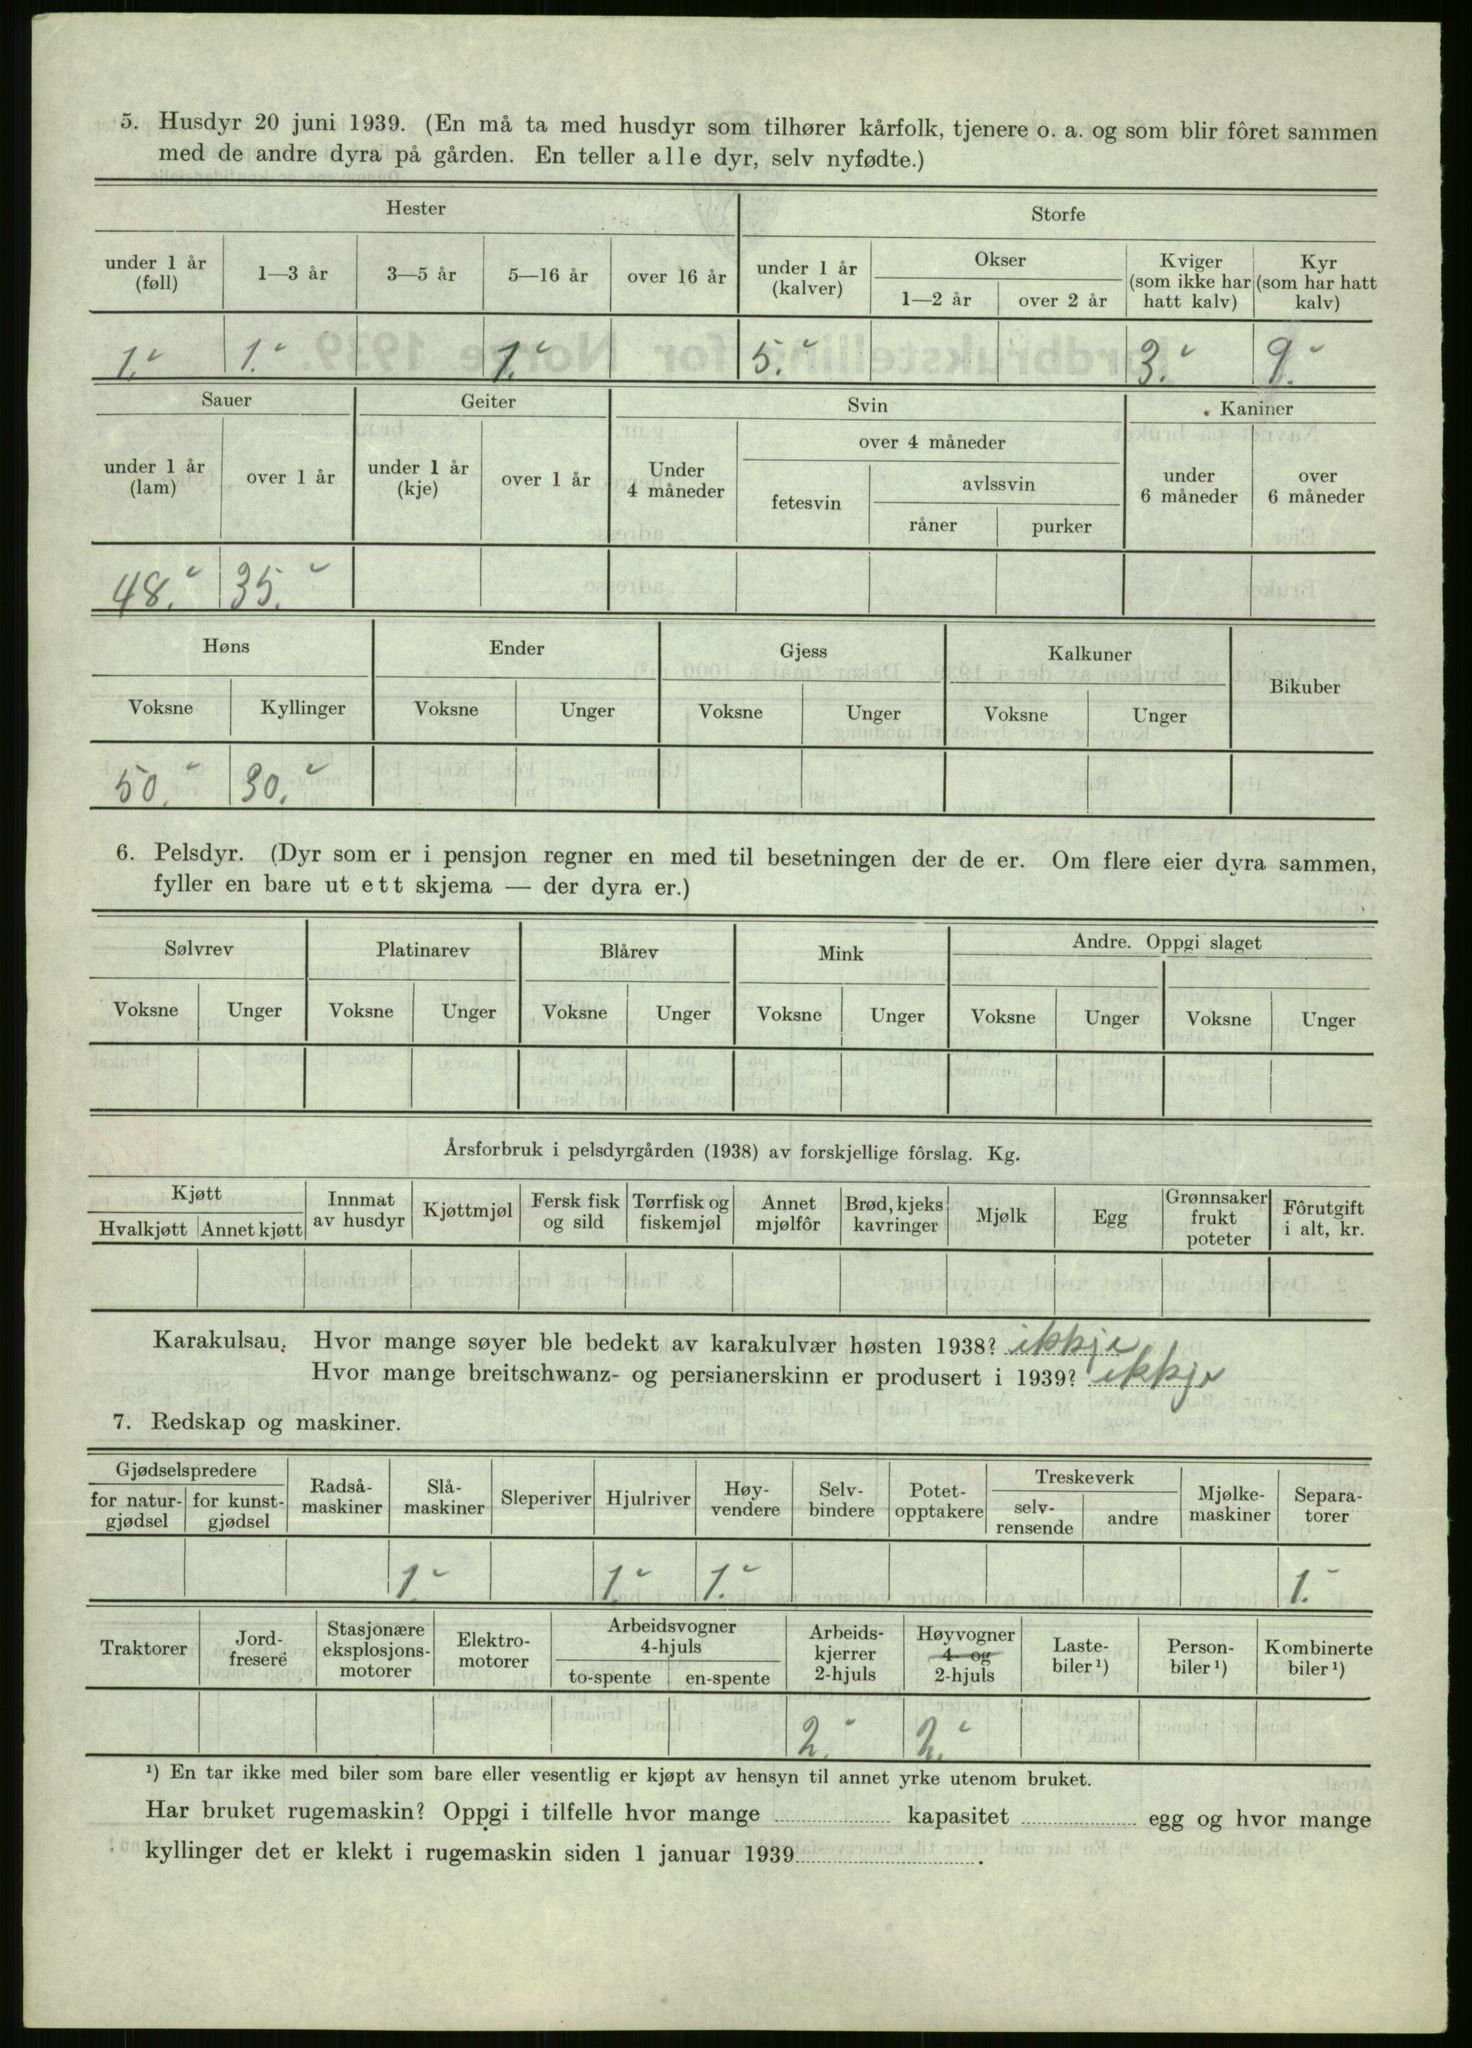 5. Husdyr 20 juni 1939. (En må ta med husdyr som tilhører kårfolk, tjenere o. a. og som blir fôret sammen
med de andre dyra på gården. En teller alle dyr, selv nyfødte.)
Hester Storfe
under 1 år (føll) 1—3 år 3—5 år 5—16 år over 16 år under 1 år (kalver) Okser 1—2 år over 2 år Kviger (som ikke har hatt kalv) Kyr (som har hatt kalv)
1. 1. 1. 5. 3. 9.
Sauer Geiter Svin Kaniner
under 1 år (lam) over 1 år under 1 år (kje) over 1 år Under 4 måneder over 4 måneder fetesvin avlssvin råner purker under 6 måneder over 6 måneder
48. 35.
Høns Ender Gjess Kalkuner Bikuber
Voksne Kyllinger Voksne Unger Voksne Unger Voksne Unger
50. 30.
6. Pelsdyr. (Dyr som er i pensjon regner en med til besetningen der de er. Om flere eier dyra sammen,
fyller en bare ut ett skjema — der dyra er.)
Sølvrev Platinarev Blårev Mink Andre. Oppgi slaget
Voksne Unger Voksne Unger Voksne Unger Voksne Unger Voksne Unger Voksne Unger
Årsforbruk i pelsdyrgården (1938) av forskjellige fôrslag. Kg.
Kjøtt Hvalkjøtt Annet kjøtt Innmat av husdyr Kjøttmjøl Fersk fisk og sild Tørrfisk og fiskemjøl Annet mjølfôr Brød, kjeks kavringer Mjølk Egg Grønnsaker frukt poteter Fôrutgift i alt, kr.
Karakulsau. Hvor mange søyer ble bedekt av karakulvær høsten 1938? ikkje
Hvor mange breitschwanz- og persianerskinn er produsert i 1939? ikkje
7. Redskap og maskiner.
Gjødselspredere for natur-gjødsel for kunst-gjødsel Radså-maskiner Slå-maskiner Sleperiver Hjulriver Høy-vendere Selv-bindere Potet-opptakere Treskeverk selv-rensende andre Mjølke-maskiner Separa-torer
1. 1. 1. 1.
Traktorer Jord-fresere Stasjonære eksplosjons-motorer Elektro-motorer Arbeidsvogner 4-hjuls to-spente en-spente Arbeids-kjerrer 2-hjuls Høyvogner 4- og 2-hjuls Laste-biler ¹) Person-biler ¹) Kombinerte biler ¹)
2. 2.
¹) En tar ikke med biler som bare eller vesentlig er kjøpt av hensyn til annet yrke utenom bruket.
Har bruket rugemaskin? Oppgi i tilfelle hvor mange kapasitet egg og hvor mange
kyllinger det er klekt i rugemaskin siden 1 januar 1939 .